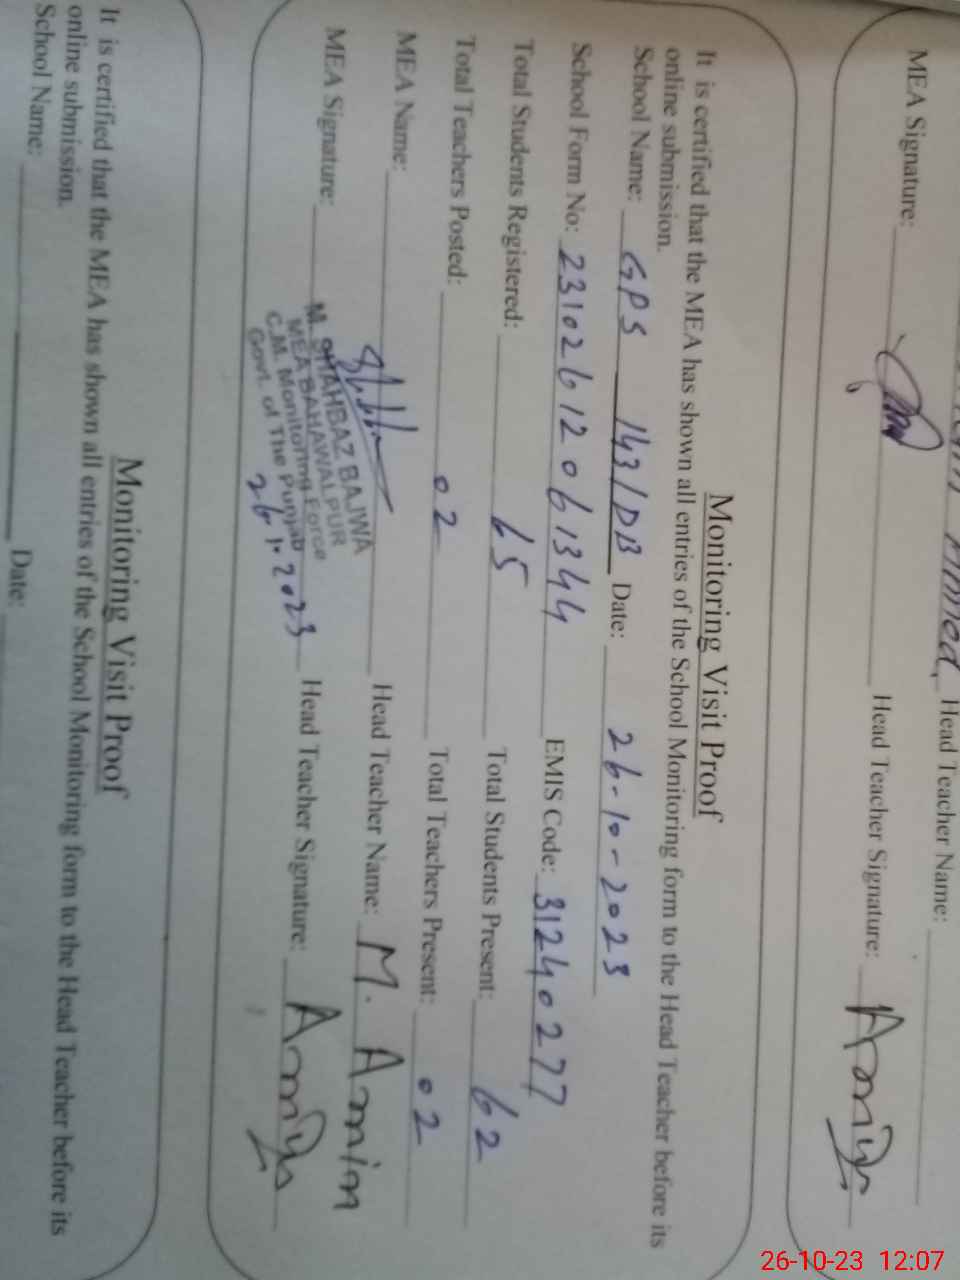 Head Teacher Name:
MEA Signature: Head Teacher Signature:
Monitoring Visit Proof
It is certified that the MEA has shown all entries of the School Monitoring form to the Head Teacher before its
online submission.
School Name: GPS 143/DB Date: 26-10-2023
School Form No: 23102612061344 EMIS Code: 31240277
Total Students Registered: 65 Total Students Present: 62
Total Teachers Posted: 02 Total Teachers Present: 02
MEA Name: Head Teacher Name: M. Amin
MEA Signature: Head Teacher Signature:
M. SHAHBAZ BAJWA
MEA BAHAWALPUR
C.M. Monitoring Force
Govt. of The Punjab
Monitoring Visit Proof
It is certified that the MEA has shown all entries of the School Monitoring form to the Head Teacher before its
online submission.
School Name: Date:
26-10-23 12:07